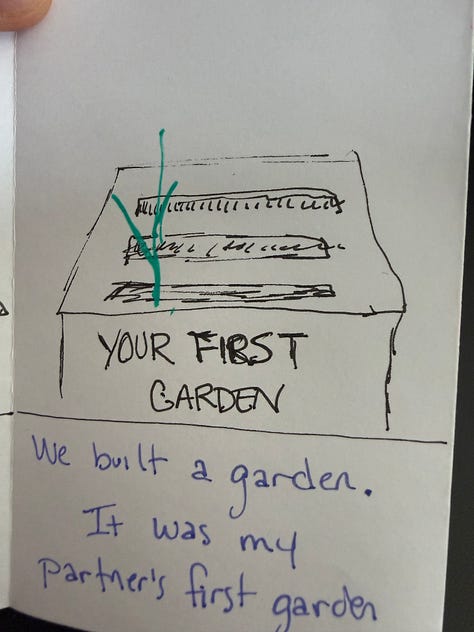 YOUR FIRST
GARDEN
We built a garden.
It was my
partner's first garden